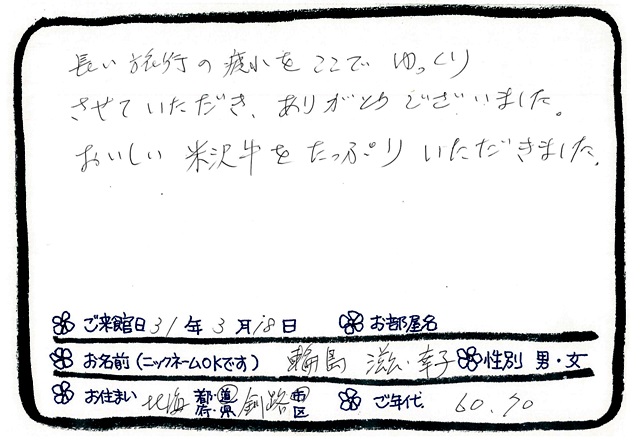 長い旅行の疲れをここでゆっくり
させていただき、ありがとうございました。
おいしい米沢牛をたっぷりいただきました。
ご来館日 31年3月18日 お部屋名
お名前(ニックネームOKです) 輪島 滋・幸子 性別 男・女
お住まい 北海 都・道府・県 釧路 市区 ご年代 60.70